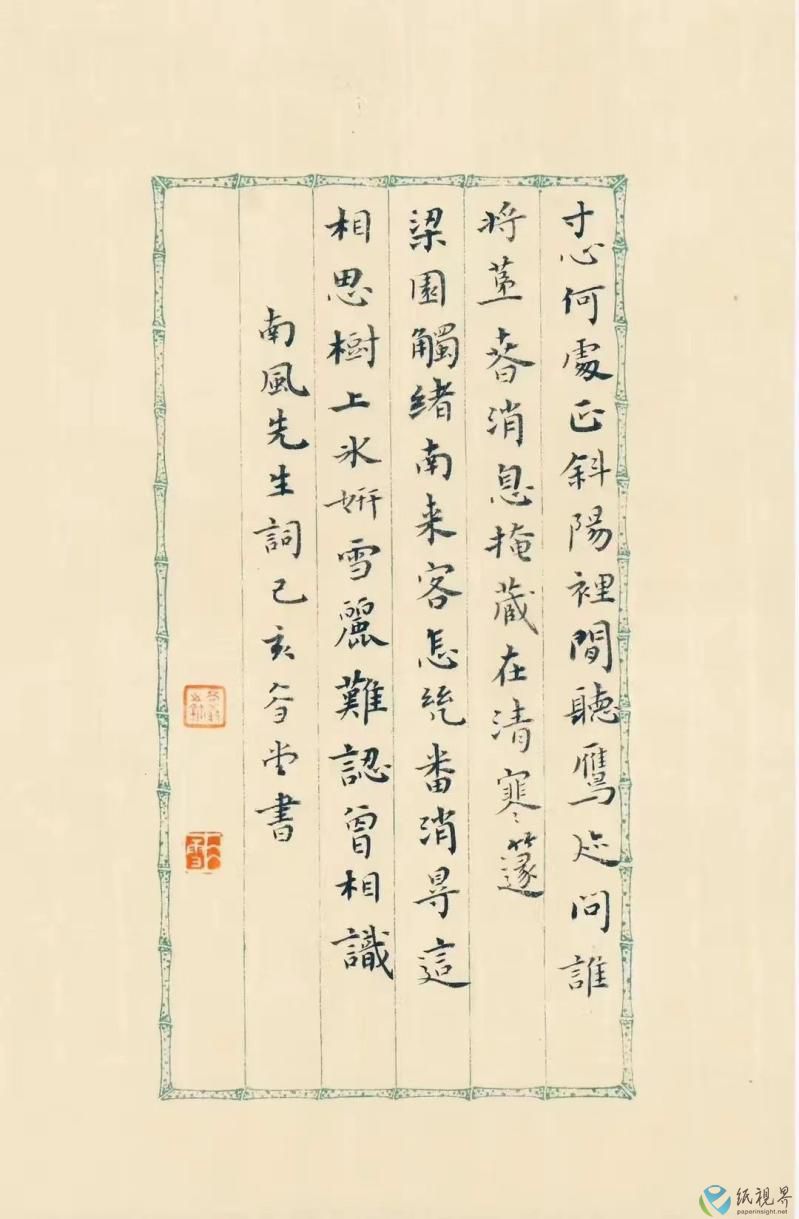 寸心何處正斜陽裡間聽鴈迹問誰
將堇春消息掩藏在清寒邃
梁園觸緒南来客怎幾番消尋這
相思樹上氷姸雪麗難認曾相識
南風先生詞己亥省堂書
纸视界
paperinsight.net